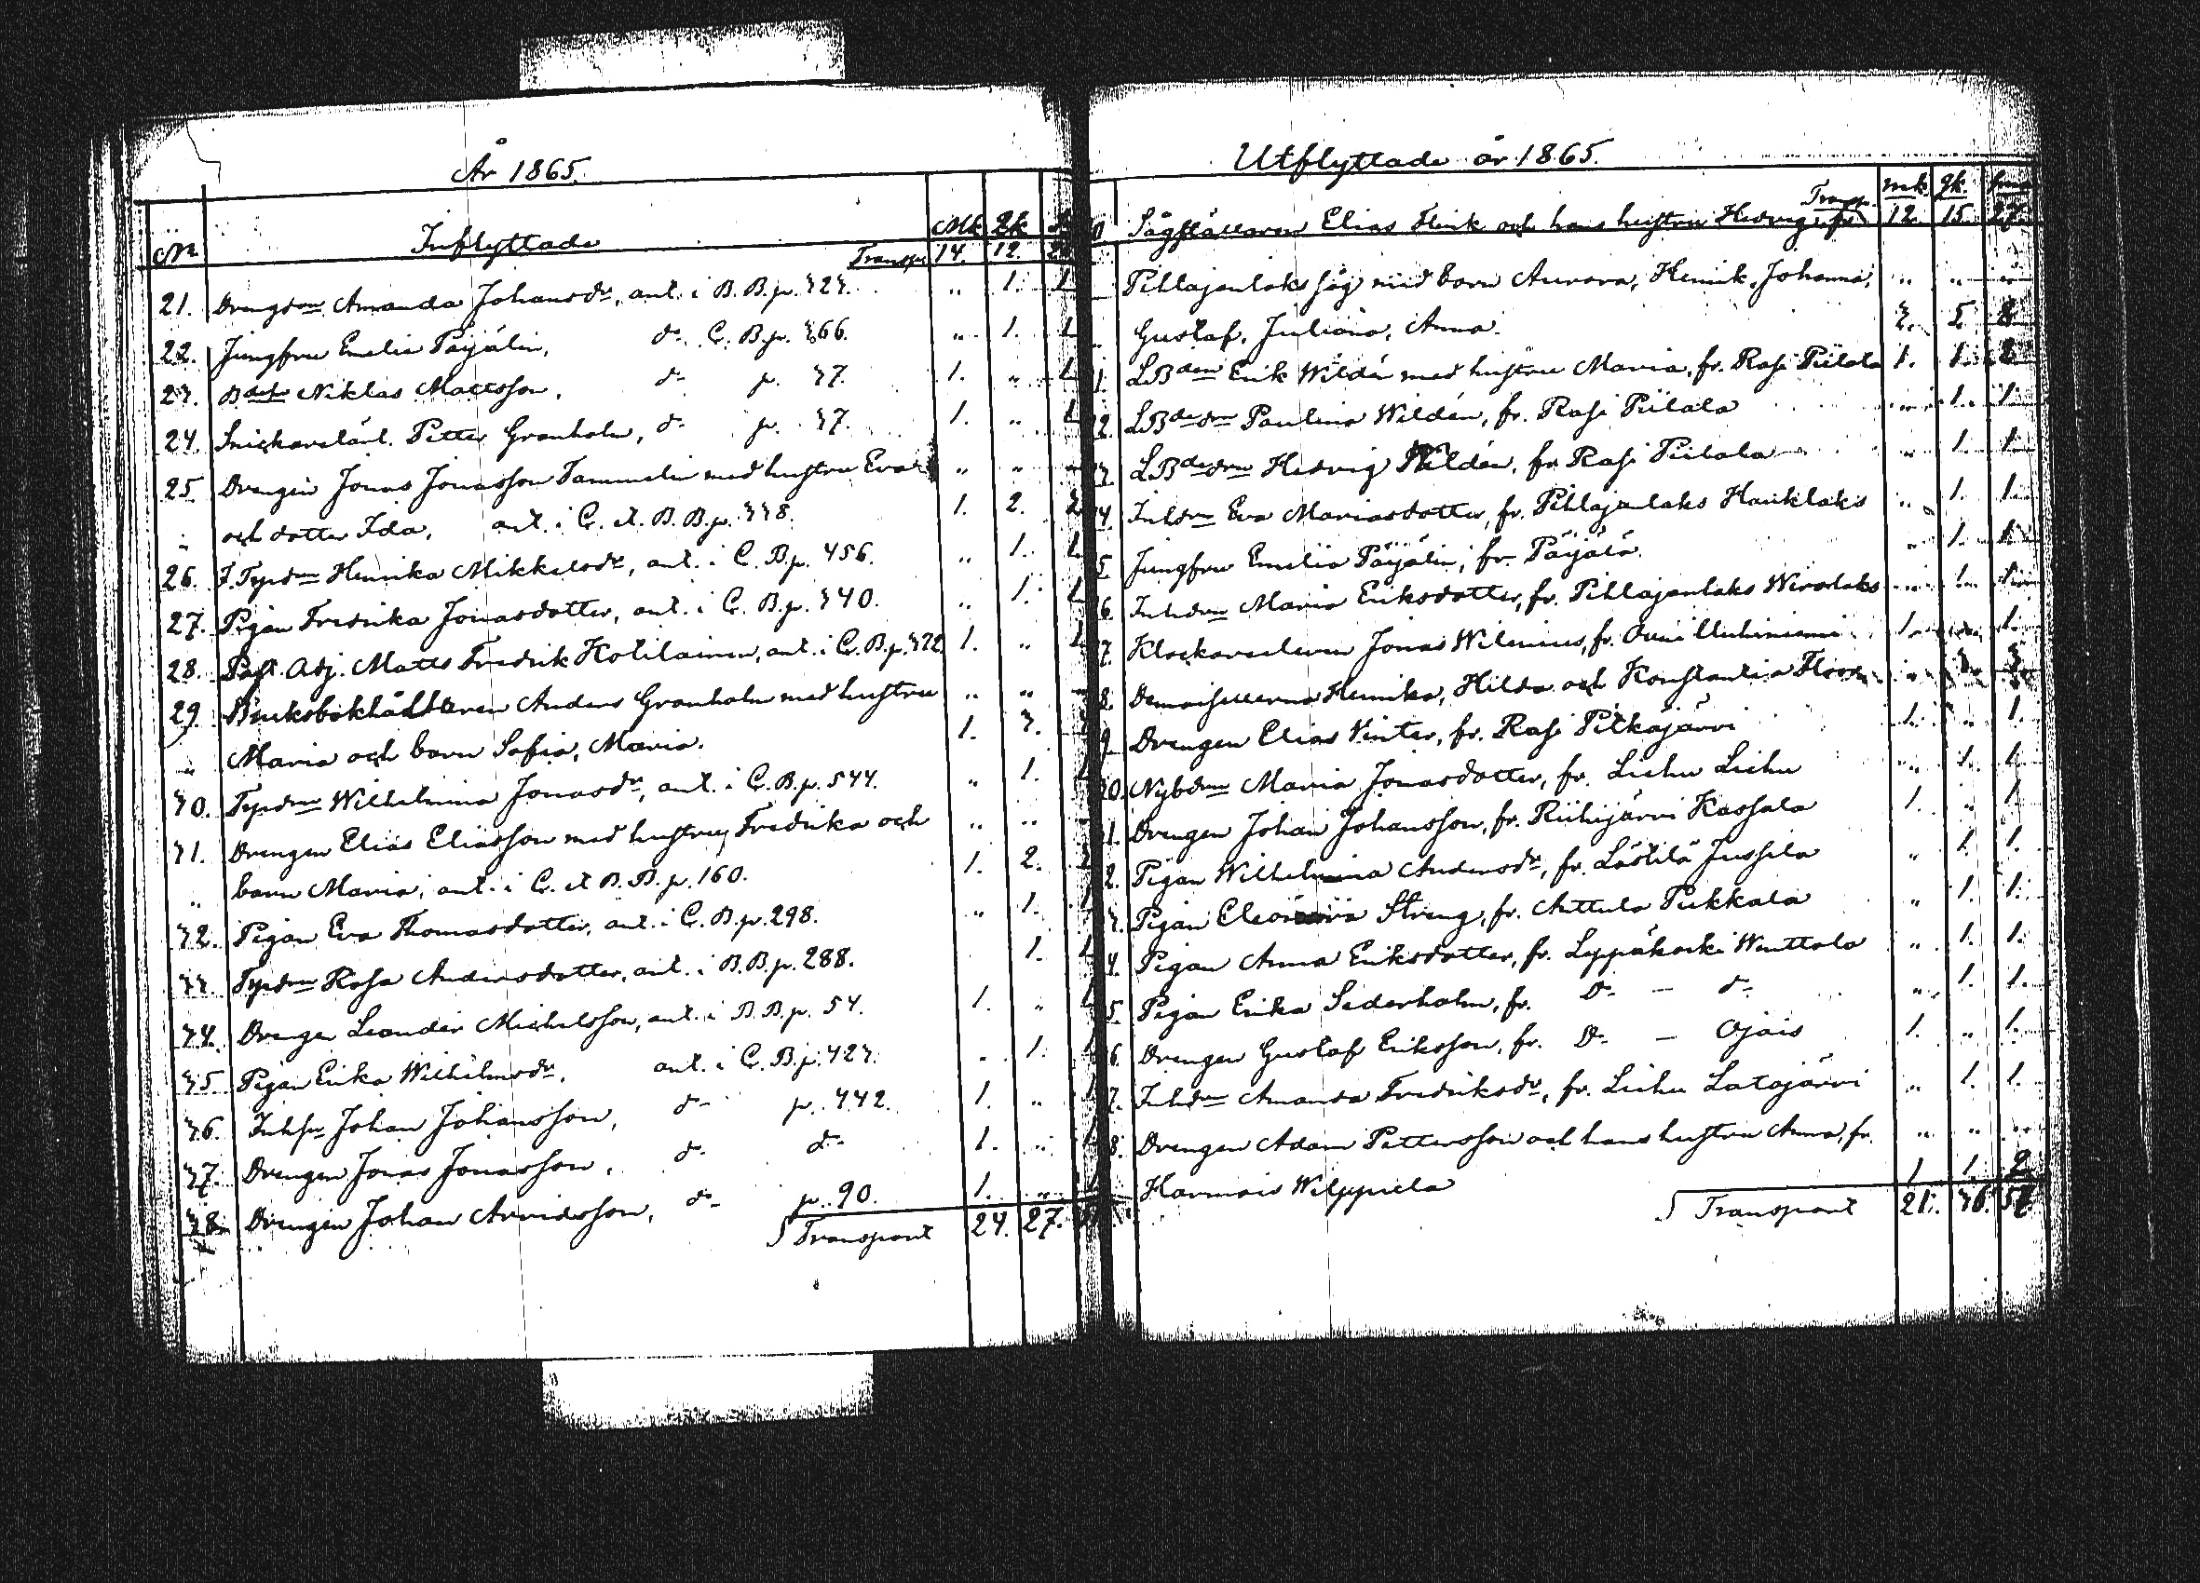 År 1865.
No Inflyttade Mk Qk
Transpt 14. 12.
21. Drengdrn Amanda Johansdr, ant. i B. B. p. 323. " 1. 1
22. Jungfru Emelia Päijälin, do C. B. p. 366. " 1. 1
23. Bdesn Niklas Mattsson, do p. 37. 1. " 1
24. Snickarelärl. Petter Granholm, do p. 37. 1. " 1
25 Drengen Jonas Jonasson Tammelin med hustru Eva " " "
" och dotter Ida, ant. i C. et. B. B. p. 338. 1. 2. 3
26. F. Tpdrn Henrika Mikkelsdr, ant. i C. B. p. 456. " 1. 1
27. Pigan Fredrika Jonasdotter, ant. i C. B. p. 340. " 1. 1
28. Past. Adj. Matts Fredrik Kotilainen, ant. i C. B. p. 322. 1. " 1
29. Bruksbokhållaren Anders Granholm med hustru " " "
" Maria och barn Sofia, Maria. 1. 3.
30. Tpdrn Wilhelmina Jonasdr, ant. i C. B. p. 544. " 1.
31. Drengen Elias Eliasson med hustru Fredrika och " " "
" barn Maria, ant. i C. et B. B. p. 160. 1. 2.
32. Pigan Eva Thomasdotter, ant. i C. B. p. 298. " 1.
33. Tpdrn Rosa Andersdotter, ant. i B. B. p. 288. 1. 1
34. Drengen Leander Michelsson, ant. i B. B. p. 54. 1. " 1
35 Pigan Erika Wilhelmsdr, ant. i C. B. p. 423. " 1. 1
36. Inhsn Johan Johansson, do p. 442. 1. "
37. Drengen Jonas Jonasson, do do 1. "
38. Drengen Johan Arvidsson, do p. 90. 1. "
Transport 24. 27.
Utflyttade år 1865.
Transp. mk. qk.
Sågställaren Elias Flink och hans hustru Hedvig, fr. 12. 15. 27.
Pihlajanlaks såg med barn Aurora, Henrik, Johanna, " " "
Gustaf, Juliana, Anna. 3. 5 8
1. LBden Erik Wildén med hustru Maria, fr. Rasi Piilola 1. 1. 2
2. LBdedrn Paulina Wildén, fr. Rasi Piilola " 1. 1.
3 LBdedrn Hedvig Wildén, fr. Rasi Piilola " 1. 1.
4. Inhdrn Eva Mariasdotter, fr. Pihlajanlaks Hauklaks " 1. 1.
5 Jungfru Emelia Päijälin, fr. Päijälä " 1. 1.
6. Inhdrn Maria Eriksdotter, fr. Pihlajanlaks Wirolaks " 1. 1.
7. Klockareeleven Jonas Wilenius, fr. Onni 1. " 1.
8. Demoisellerna Henrika, Hilda och Konstantia " 3. 3
9 Drengen Elias Vinter, fr. Rasi Pitkäjärvi 1. " 1.
20. Nybdrn Maria Jonasdotter, fr. Liehu Liehu " 1. 1.
1. Drengen Johan Johansson, fr. Riihijärvi Kassala 1. " 1.
2. Pigan Wilhelmina Andersdr, fr. Lästilä Jussila " 1. 1.
3. Pigan Eleonora Streng, fr. Anttula Pukkala " 1. 1.
4. Pigan Anna Eriksdotter, fr. Leppäkoski Wenttola " 1. 1.
5. Pigan Erika Sederholm, fr. do — do " 1. 1.
6. Drengen Gustaf Eriksson, fr. do — Ojais 1. " 1.
7. Inhdrn Amanda Fredriksdr, fr. Liehu Latojärvi " 1. 1.
8. Drengen Adam Pettersson och hans hustru Anna, fr. " " "
Harmois Wilppula 1 1. 2
Transport 21. 36. 57.